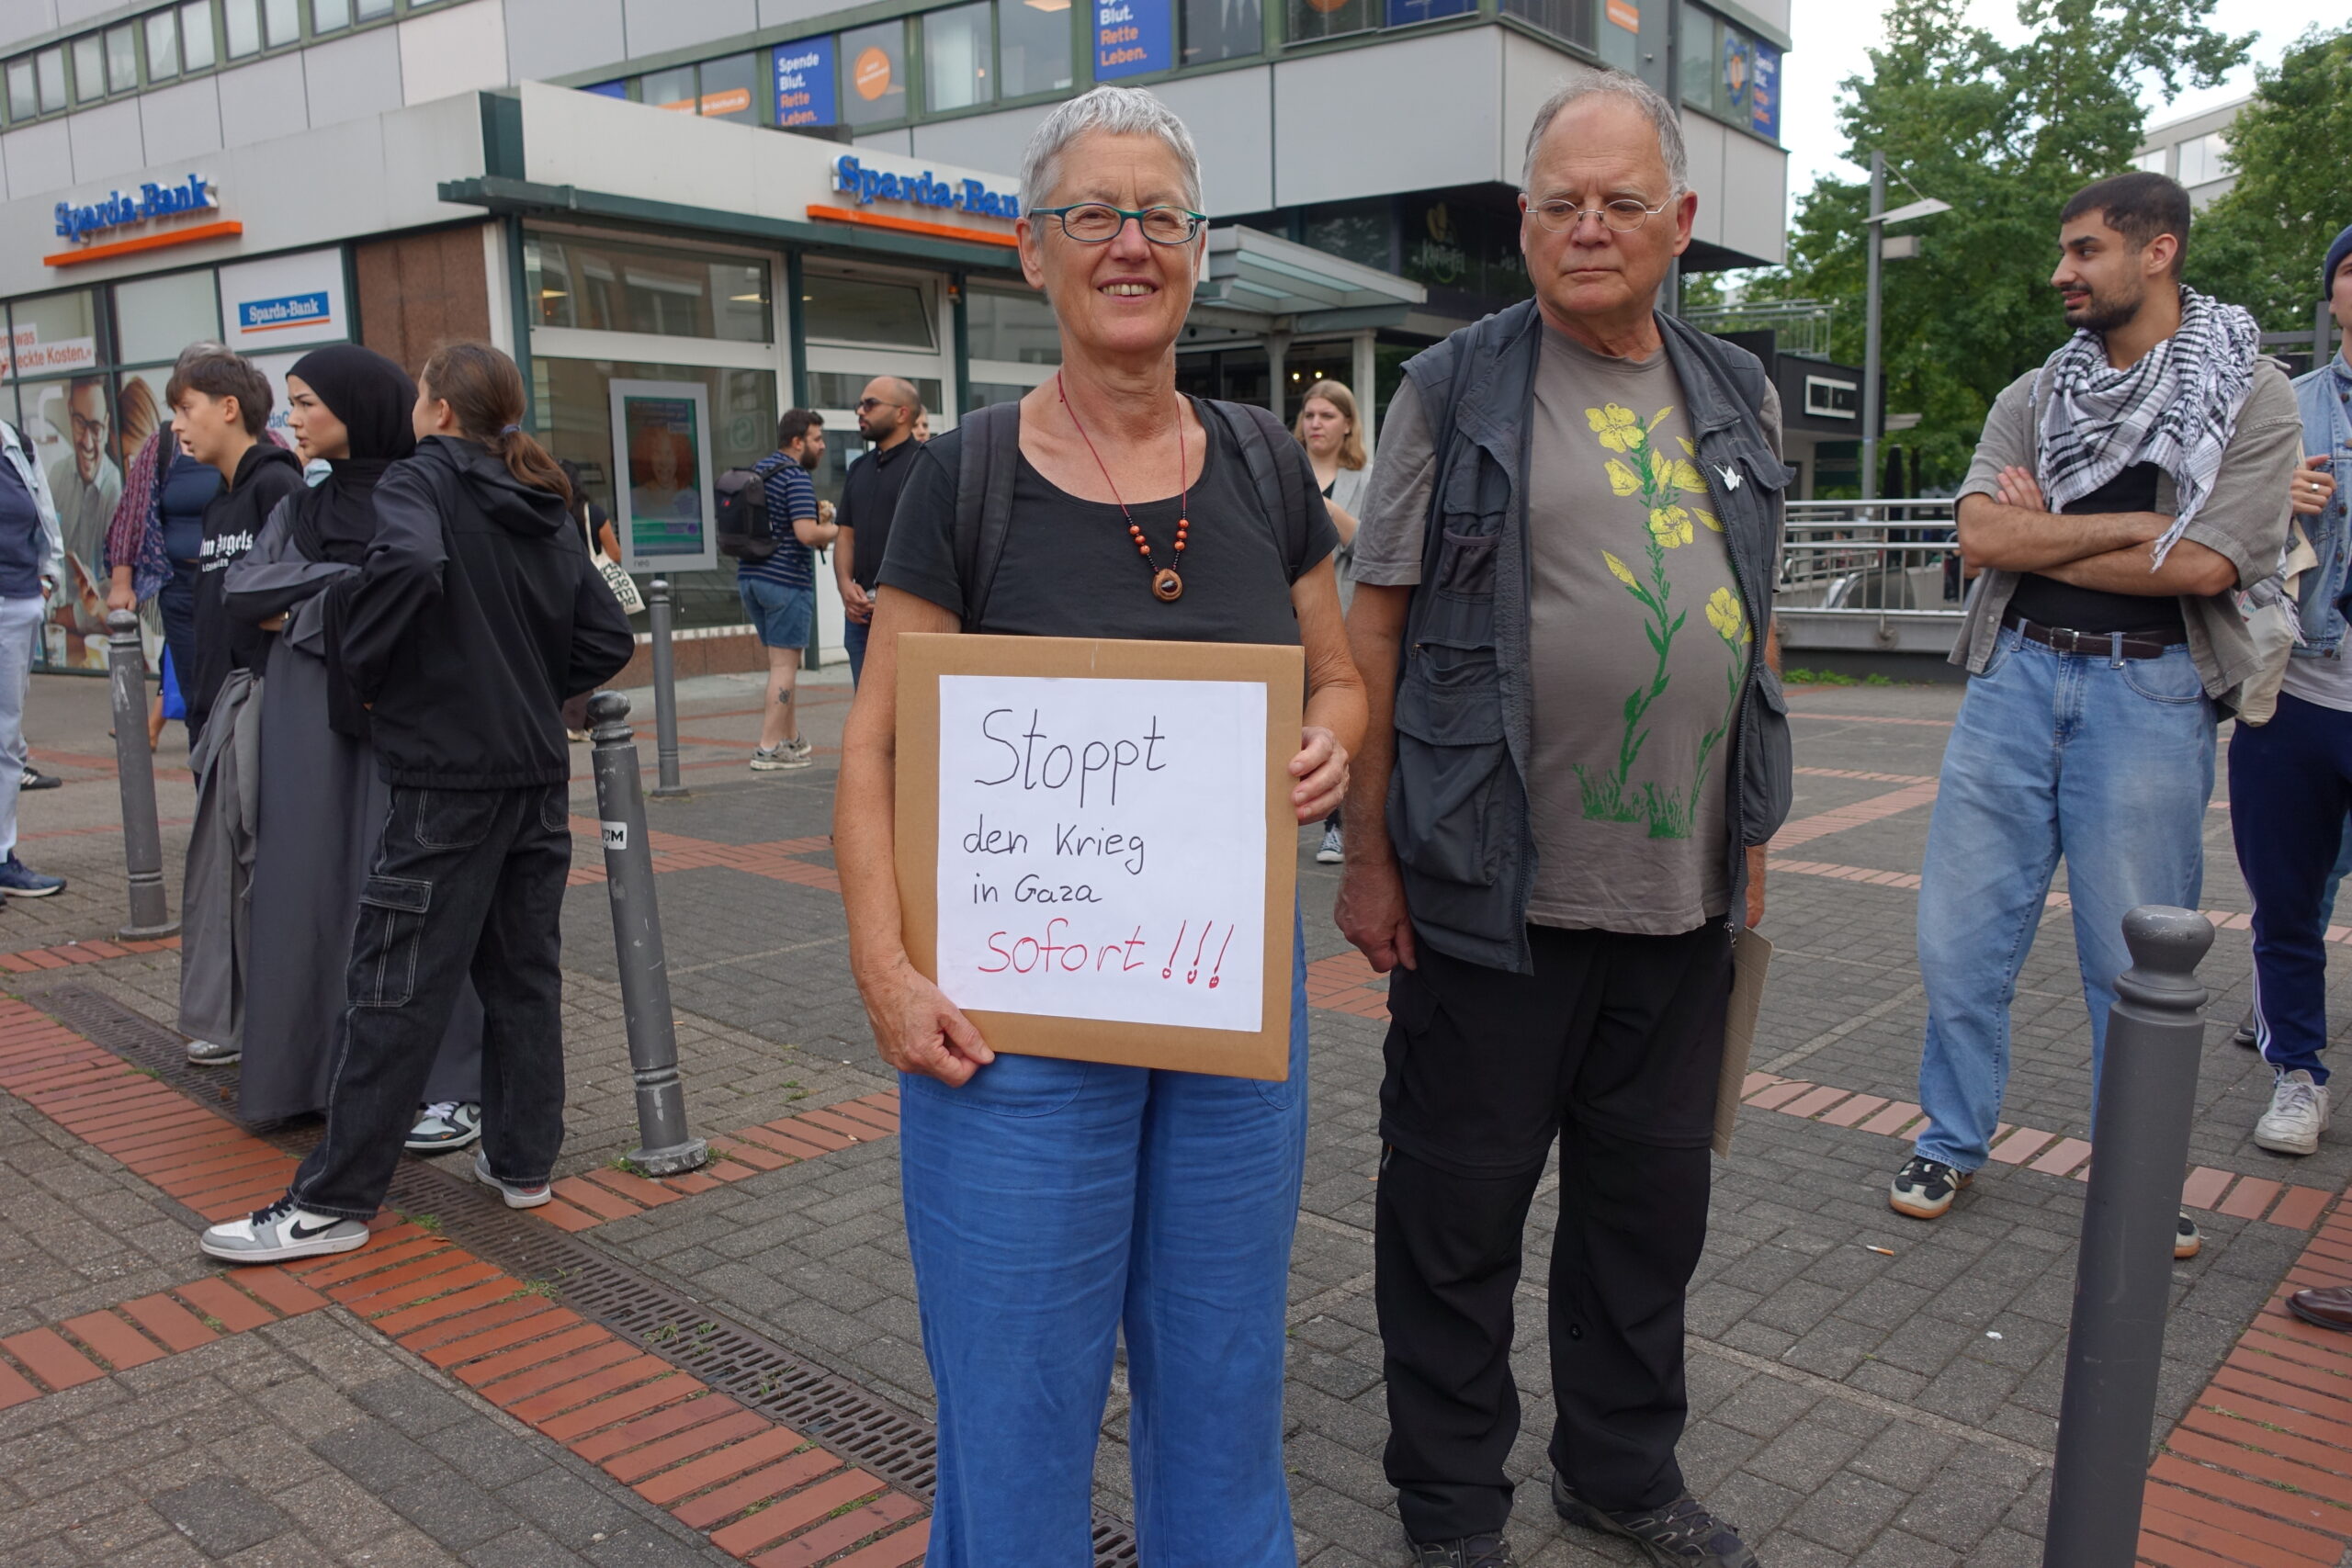 Spende
Blut.
Rette
Leben.
Blut.
Rette
Leben.
Sparda-Bank
Sparda-Ban
Sparda-Bank
was
eckte Kosten.«
neo
Stoppt
den Krieg
in Gaza
sofort!!!